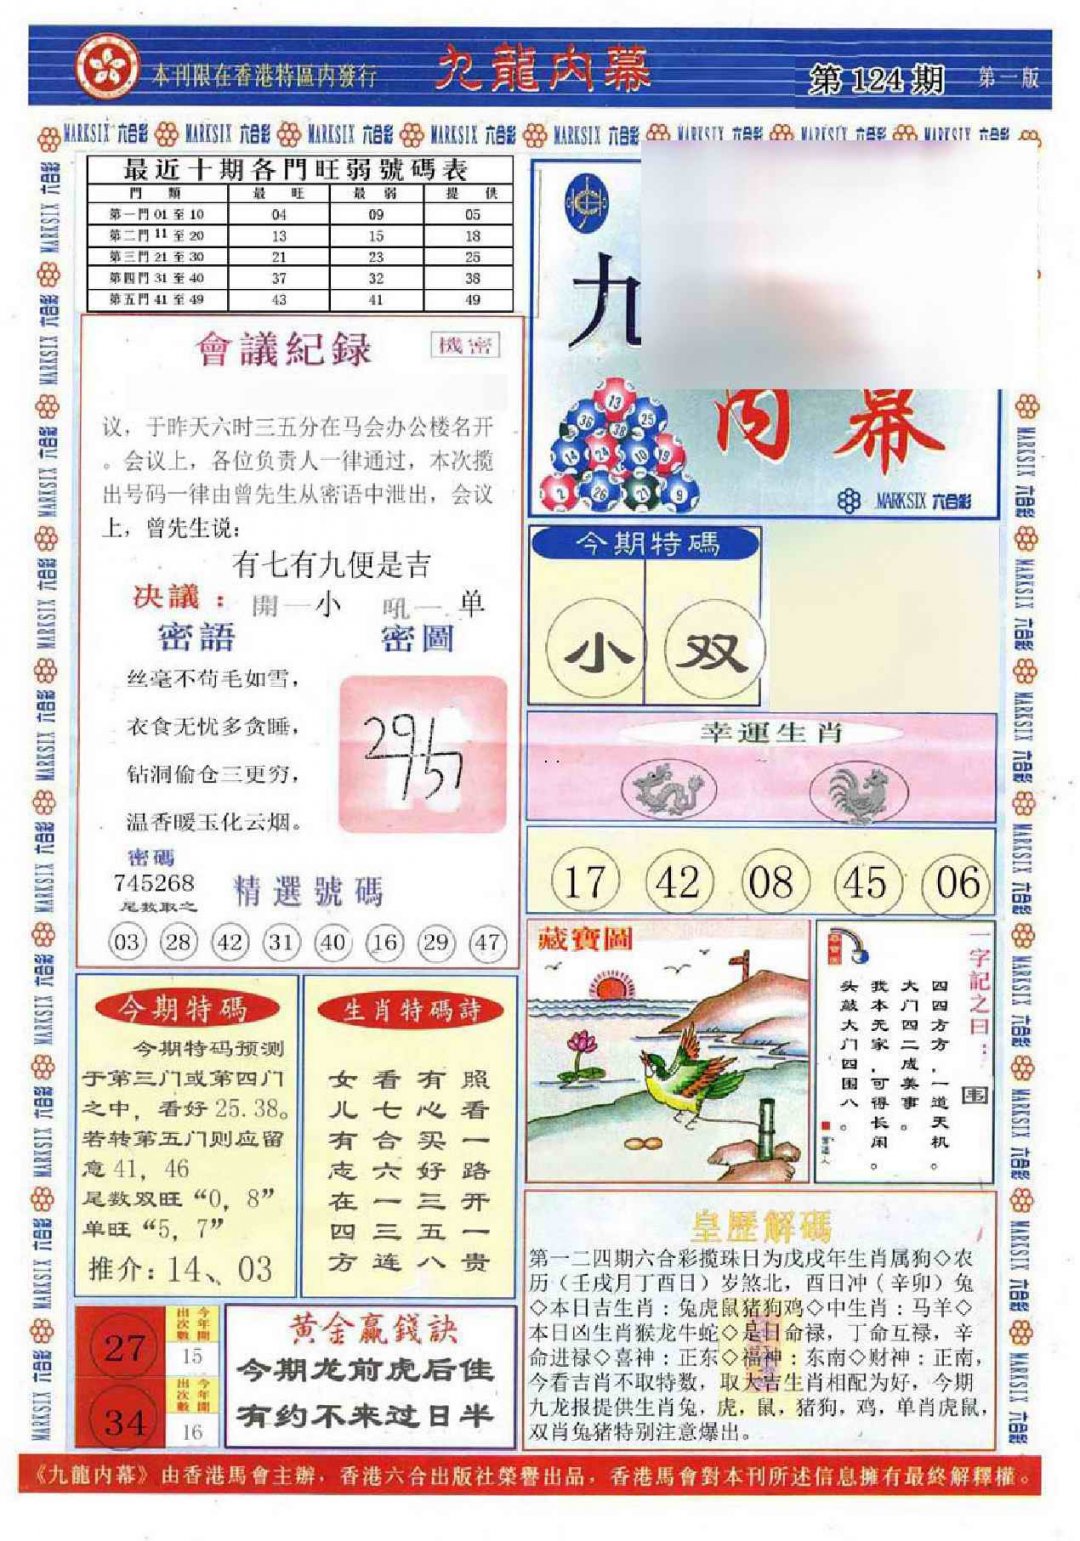 本刊限在香港特區內發行
九龍內幕
第 124 期
第一版
MARKSIX 六合彩 MARKSIX 六合彩 MARKSIX 六合彩 MARKSIX 六合彩 MARKSIX 六合彩 MARKSIX 六合彩 MARKSIX 六合彩 MARKSIX 六合彩
最近十期各門旺弱號碼表
門 類 最 旺 最 弱 提 供
第一門 01 至 10 04 09 05
第二門 11 至 20 13 15 18
第三門 21 至 30 21 23 25
第四門 31 至 40 37 32 38
第五門 41 至 49 43 41 49
會議紀録
機密
议，于昨天六时三五分在马会办公楼名开
。会议上，各位负责人一律通过，本次揽
出号码一律由曾先生从密语中泄出，会议
上，曾先生说：
有七有九便是吉
决議： 開一小 吼一 单
密語 密圖
丝毫不苟毛如雪，
衣食无忧多贪睡，
钻洞偷仓三更穷，
温香暖玉化云烟。
密碼
745268
尾数取之
精選號碼
03 28 42 31 40 16 29 47
九
内幕
13
36 25
38
14 24 10 19
2 26 21 9
MARKSIX 六合彩
今期特碼
小 双
幸運生肖
17 42 08 45 06
藏寶圖
一字記之曰：
韦
四四方方，一道天机。
大门四二成美事。
我本无家，可得长闲。
头敲大门四围八。
今期特碼
今期特码预测
于第三门或第四门
之中，看好 25.38。
若转第五门则应留
意 41，46
尾数双旺“0，8”
单旺“5，7”
推介：14、03
生肖特碼詩
女看有照
儿七心看
有合买一
志六好路
在一三开
四三五一
方连八贵
皇歷解碼
第一二四期六合彩揽珠日为戊戌年生肖属狗◇农
历（壬戌月丁酉日）岁煞北，酉日冲（辛卯）兔
◇本日吉生肖：兔虎鼠猪狗鸡◇中生肖：马羊◇
本日凶生肖猴龙牛蛇◇是日命禄，丁命互禄，辛
命进禄◇喜神：正东◇福神：东南◇财神：正南，
今看吉肖不取特数，取大吉生肖相配为好，今期
九龙报提供生肖兔，虎，鼠，猪狗，鸡，单肖虎鼠，
双肖兔猪特别注意爆出。
27
今年開出次數
15
34
今年開出次數
16
黄金赢錢訣
今期龙前虎后佳
有约不来过日半
《九龍內幕》由香港馬會主辦，香港六合出版社榮譽出品，香港馬會對本刊所述信息擁有最終解釋權。